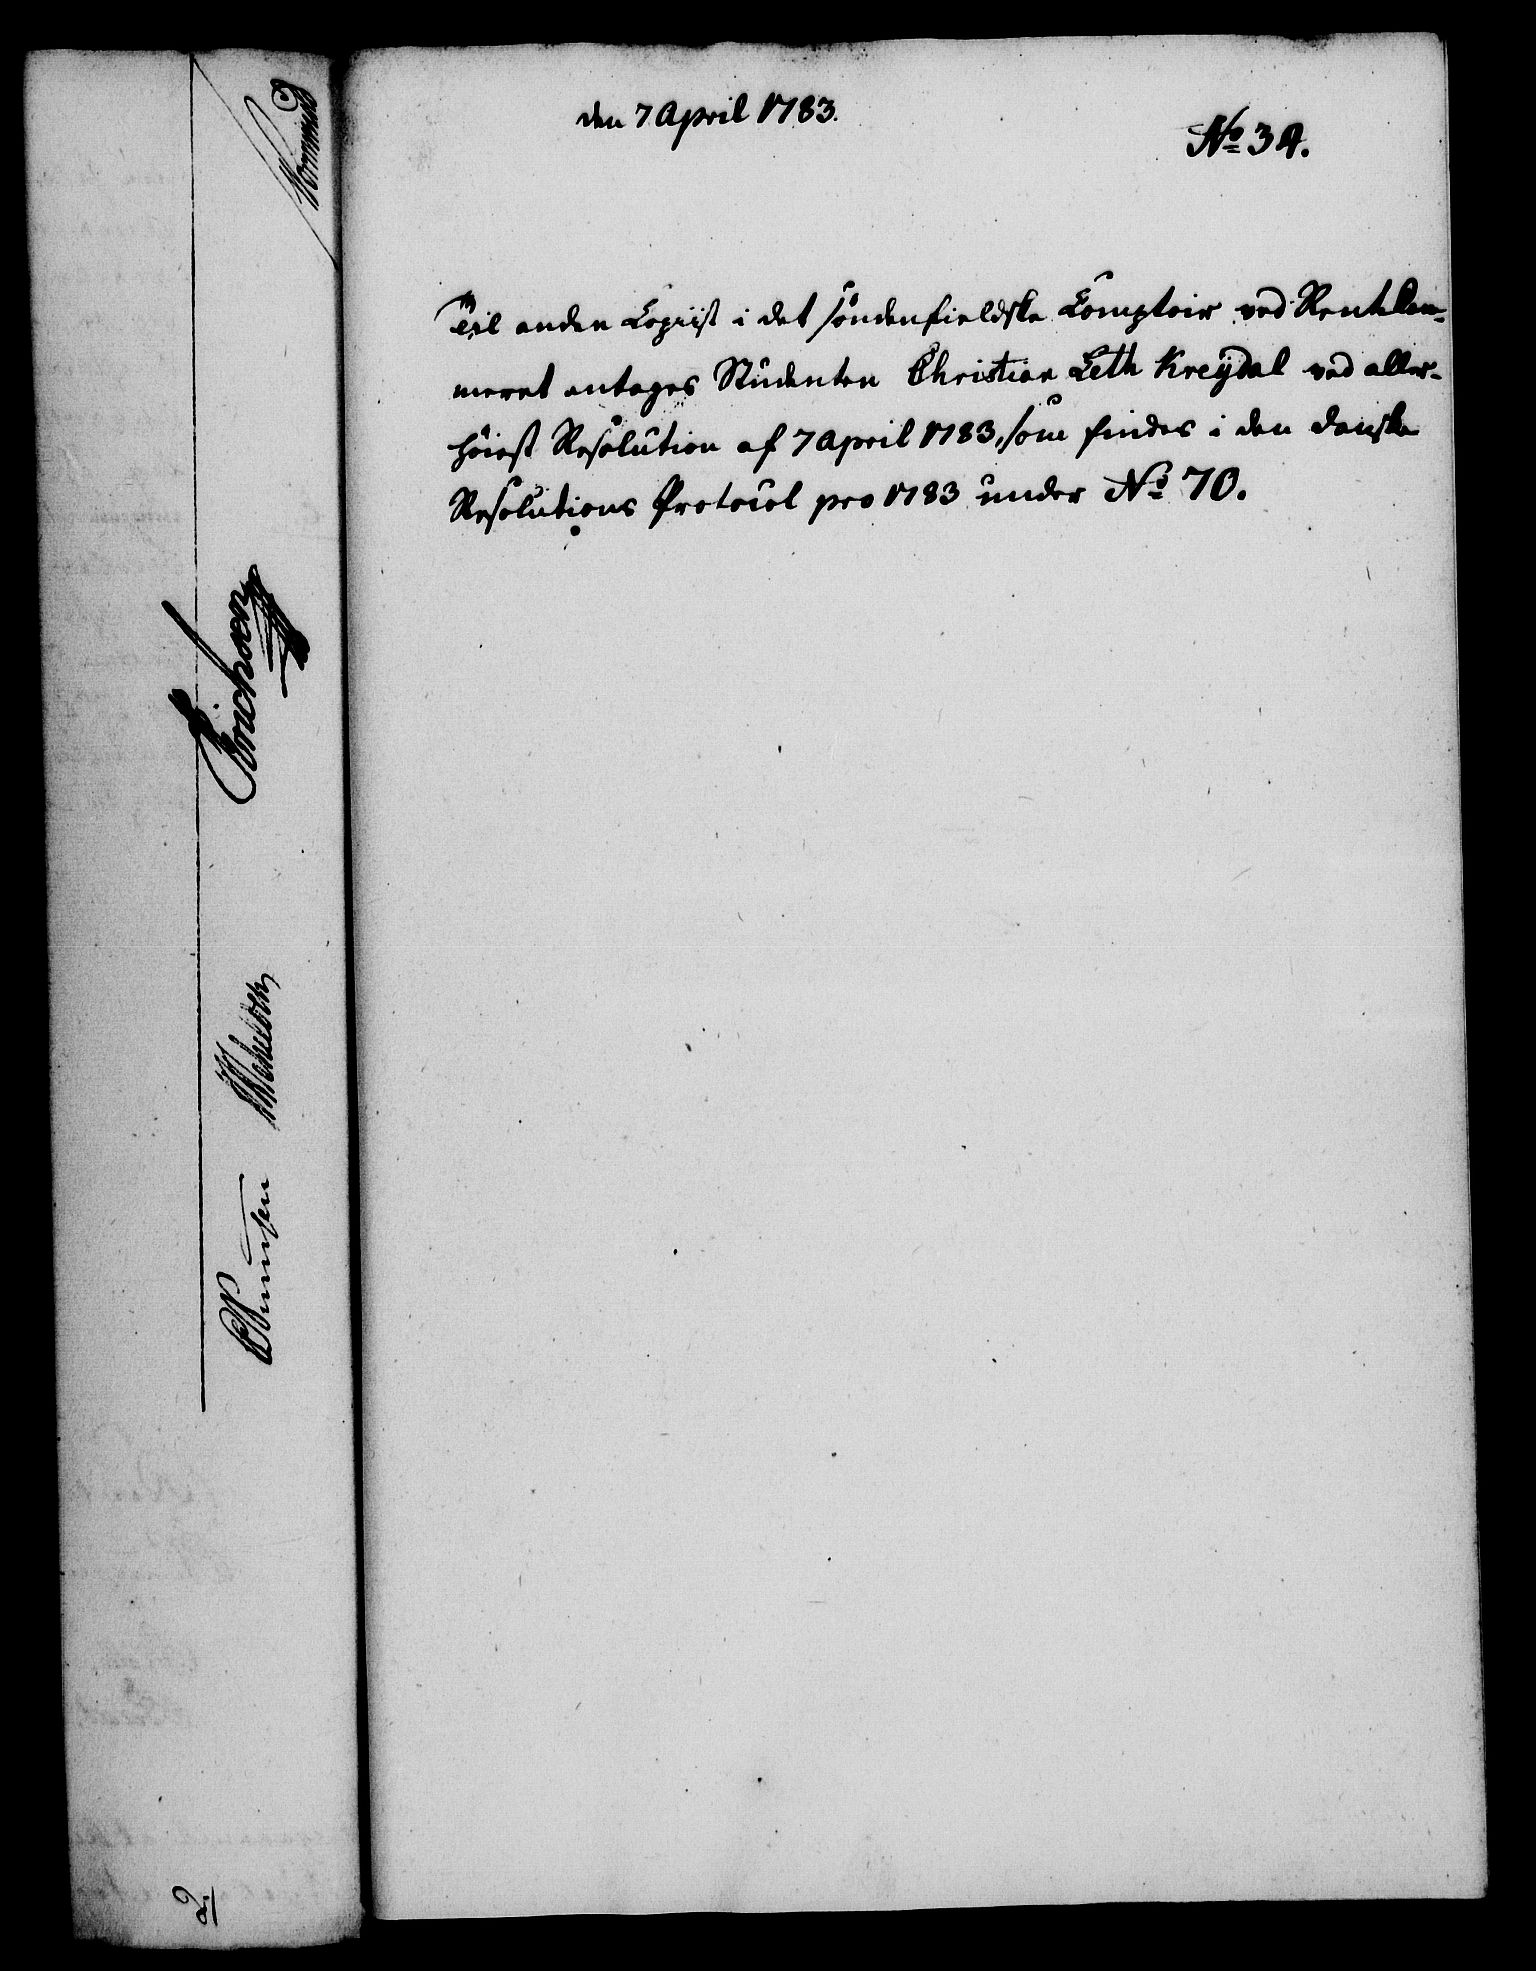 den 7 April 1783.
No 34.
Til anden Copiist i det söndenfieldske Comptoir ved Rentekam-
meret antages Studenten Christian Leth Kreydal ved aller-
höiest Resolution af 7 April 1783, som findes i den danske
Resolutions Protocol pro 1783 under No 70.
Erichsen
2